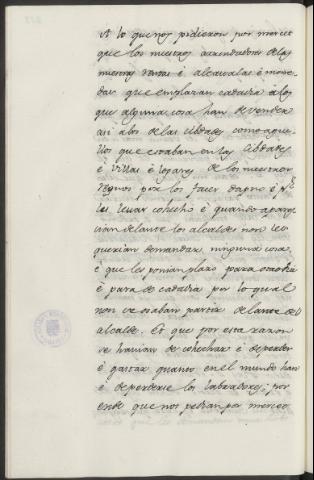 A lo que nos pidieron por merced
que los nuestros arrendadores de las
nuestras rentas é alcavalas é mone
das que emplazan cada dia a los
que alguna cosa han de vender
asi a los de las cibdades como aque
llos que estaban en las cibdades
é villas é logares de los nuestros
regnos por los facer dapno é p.r
les levar cohecho é quando apares
cian delante los alcaldes non les
querian demandar ninguna cosa
é que les ponian plazo para otro dia
é para de cada dia por lo qual
non se osaban partir delante del
alcalde. Et que por esta razon
se havian de cohechar é despender
é gastar quanto en el mundo han
é se perderse los labradores; por
ende que nos pedian por merced